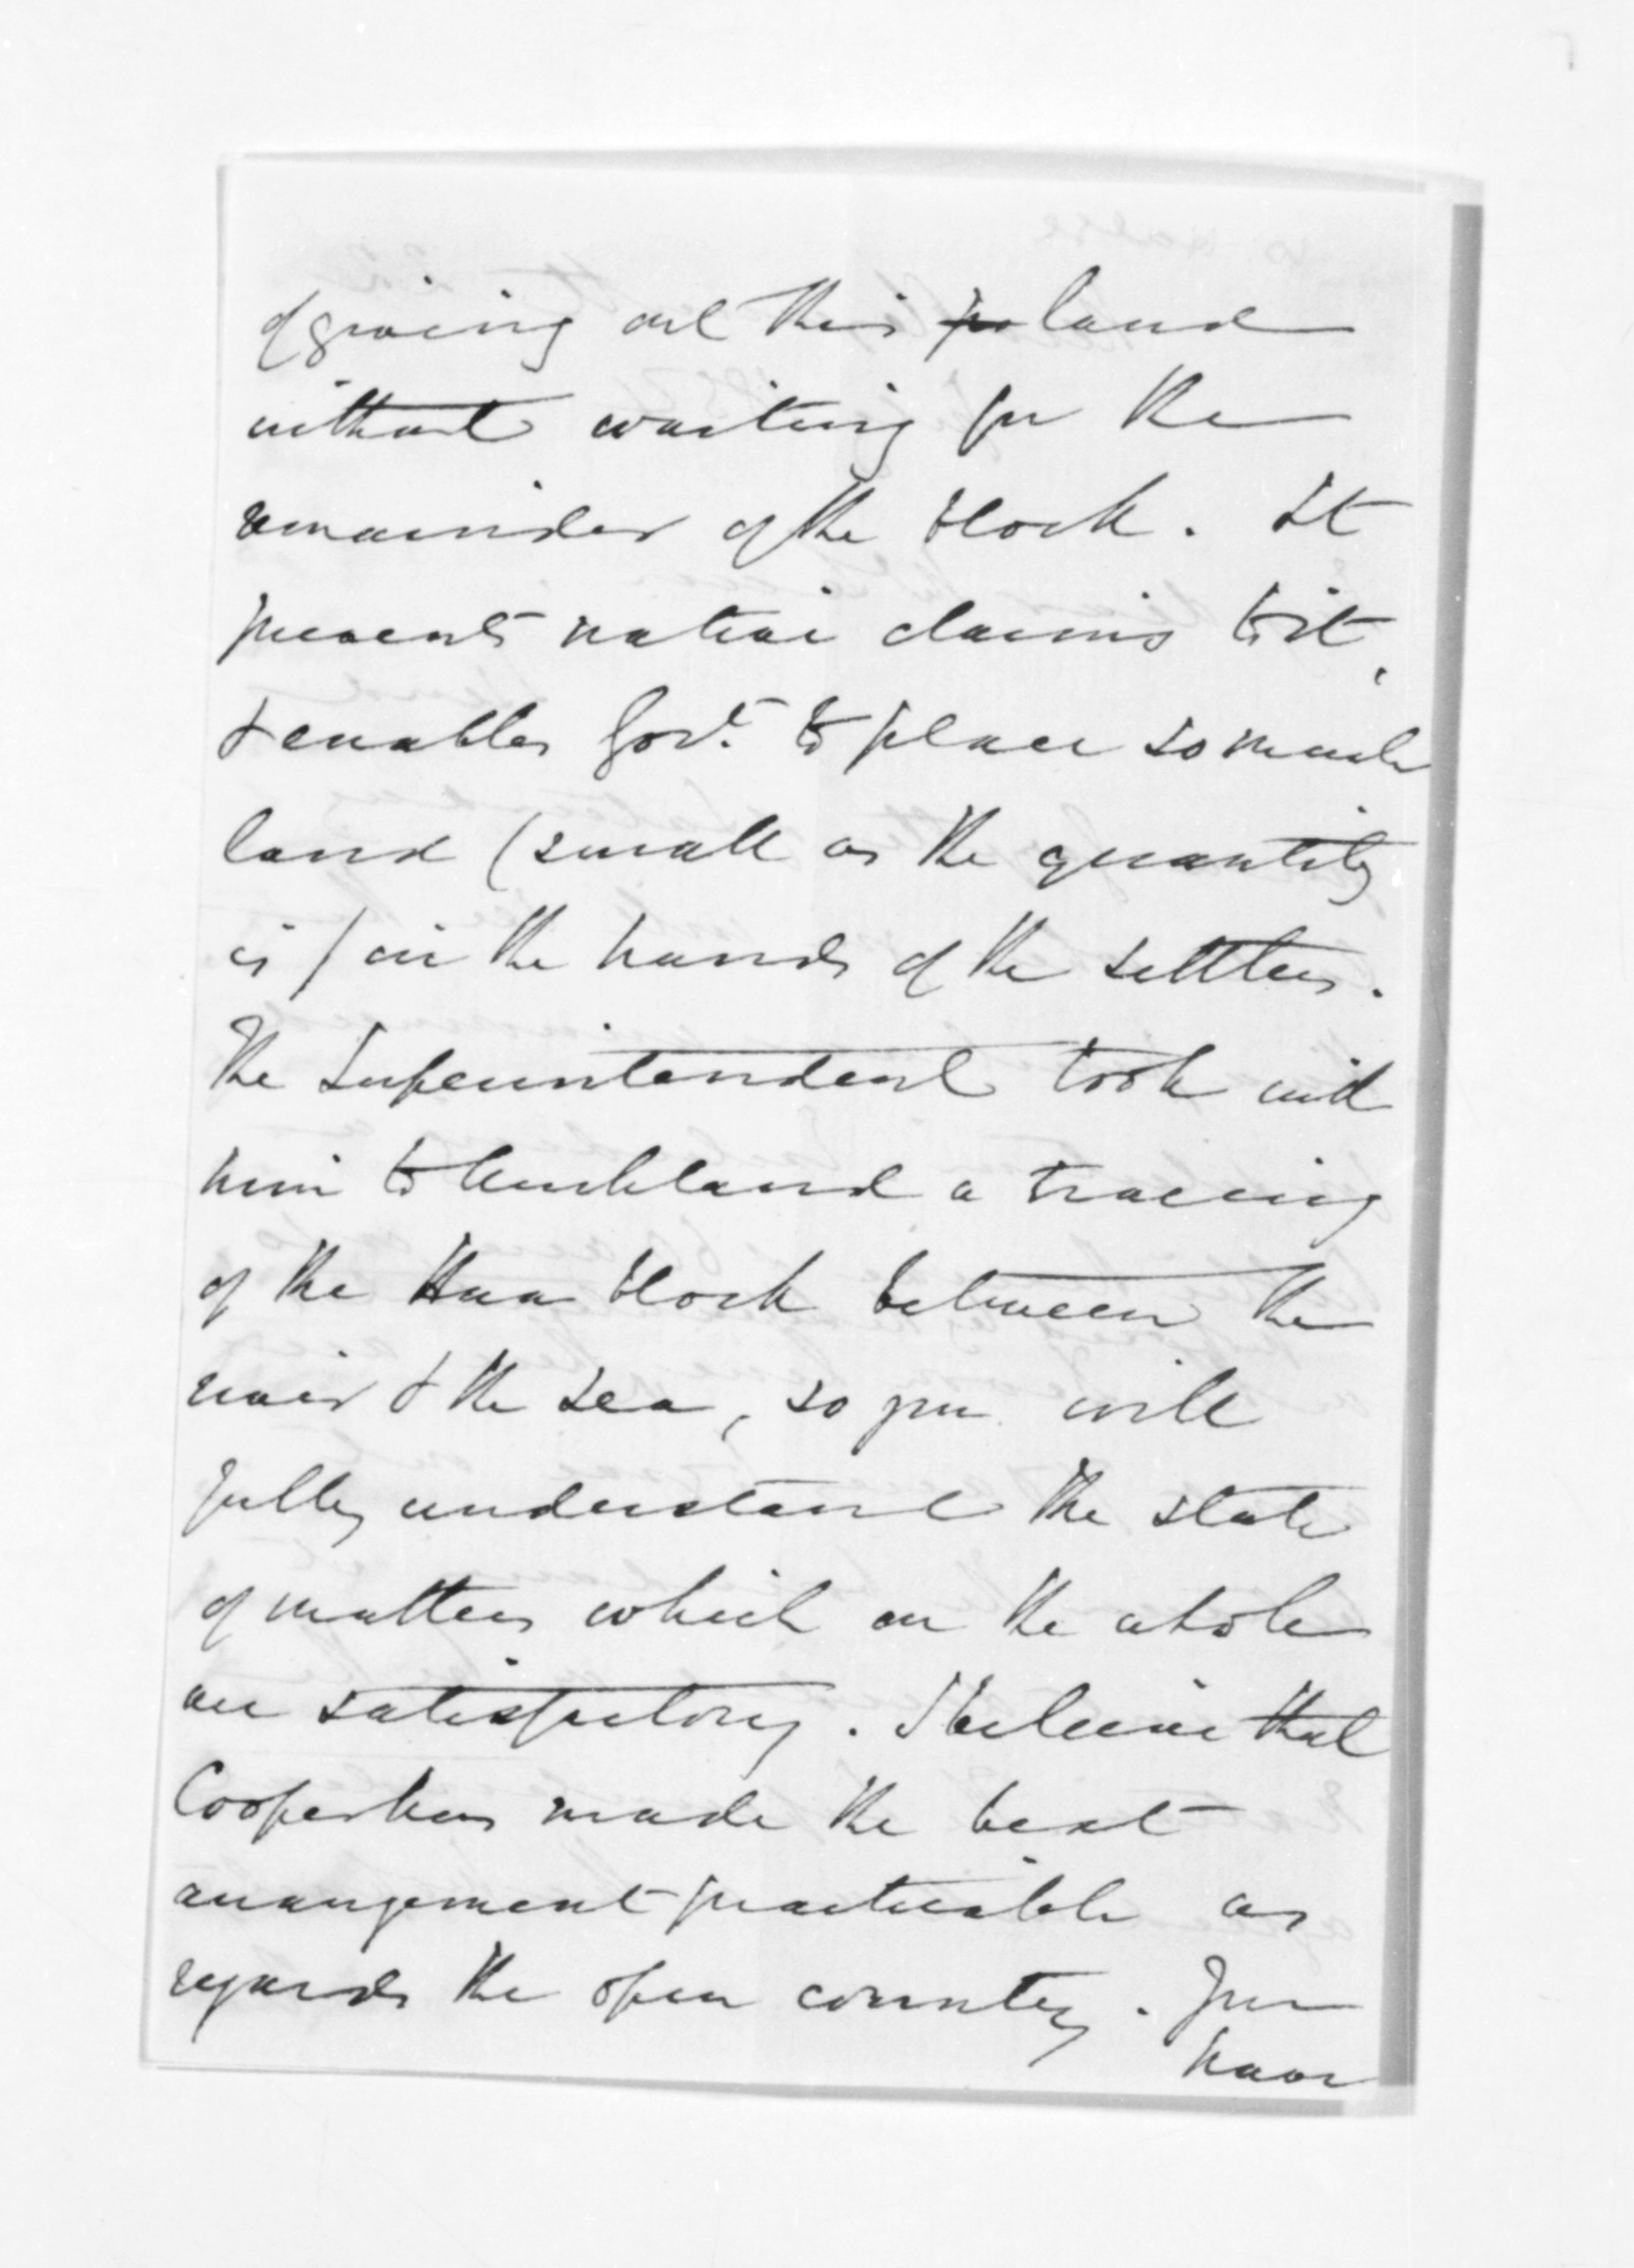 of giving out this land
without waiting for the
remainder of the block. It
prevents native claims to it,
& enables Govt. to place so much
land (small as the quantity
is) in the hands of the settlers.
The Superintendent took with
him to Auckland a tracing
of the Hua block between the
river & the sea, so you will
fully understand the state
of matters which on the whole
are satisfactory. I believe that
Cooper has made the best
arrangement practicable as
regards the open country. You
have